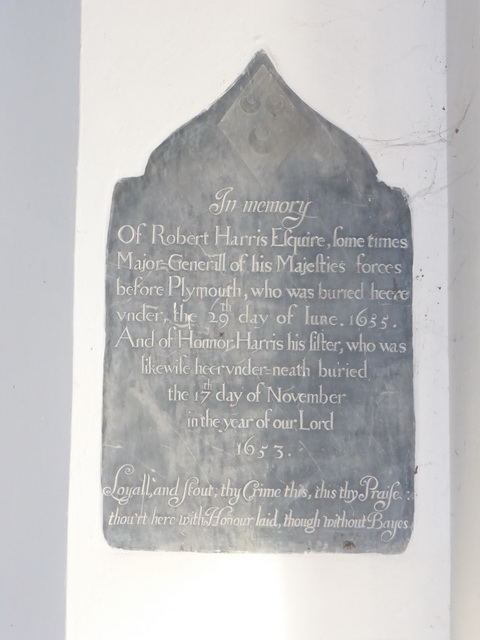 In memory
Of Robert Harris Esquire, some times
Major-Generall of his Majesties forces
before Plymouth, who was buried heere
vnder, the 29th day of Iune. 1655.
And of Honnor Harris his sister, who was
likewise heervnder-neath buried
the 17th day of November
in the year of our Lord
1653.
Loyall, and stout; thy Crime this, this thy Praise.
thou'rt here with Honour laid, though without Bayes